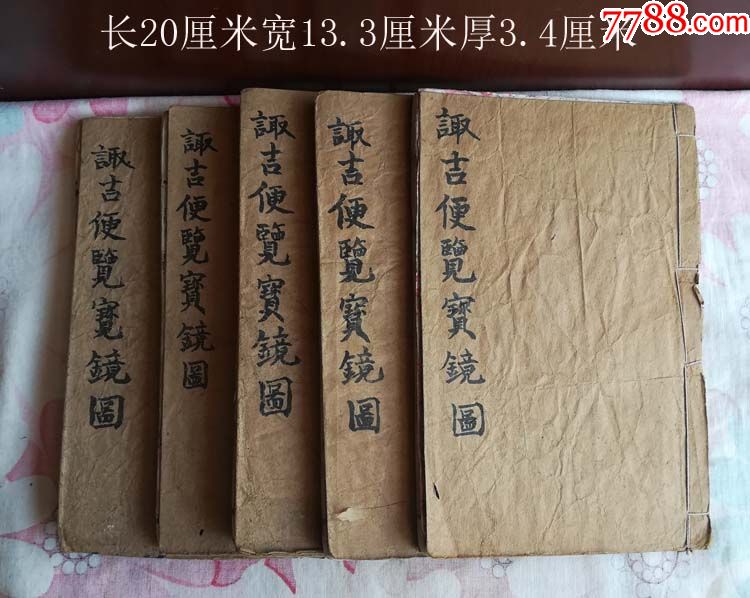 7788.com
长20厘米宽13.3厘米厚3.4厘米
諏吉便覽寶鏡圖
諏吉便覽寶鏡圖
諏吉便覽寶鏡圖
諏吉便覽寶鏡圖
諏吉便覽寶鏡圖